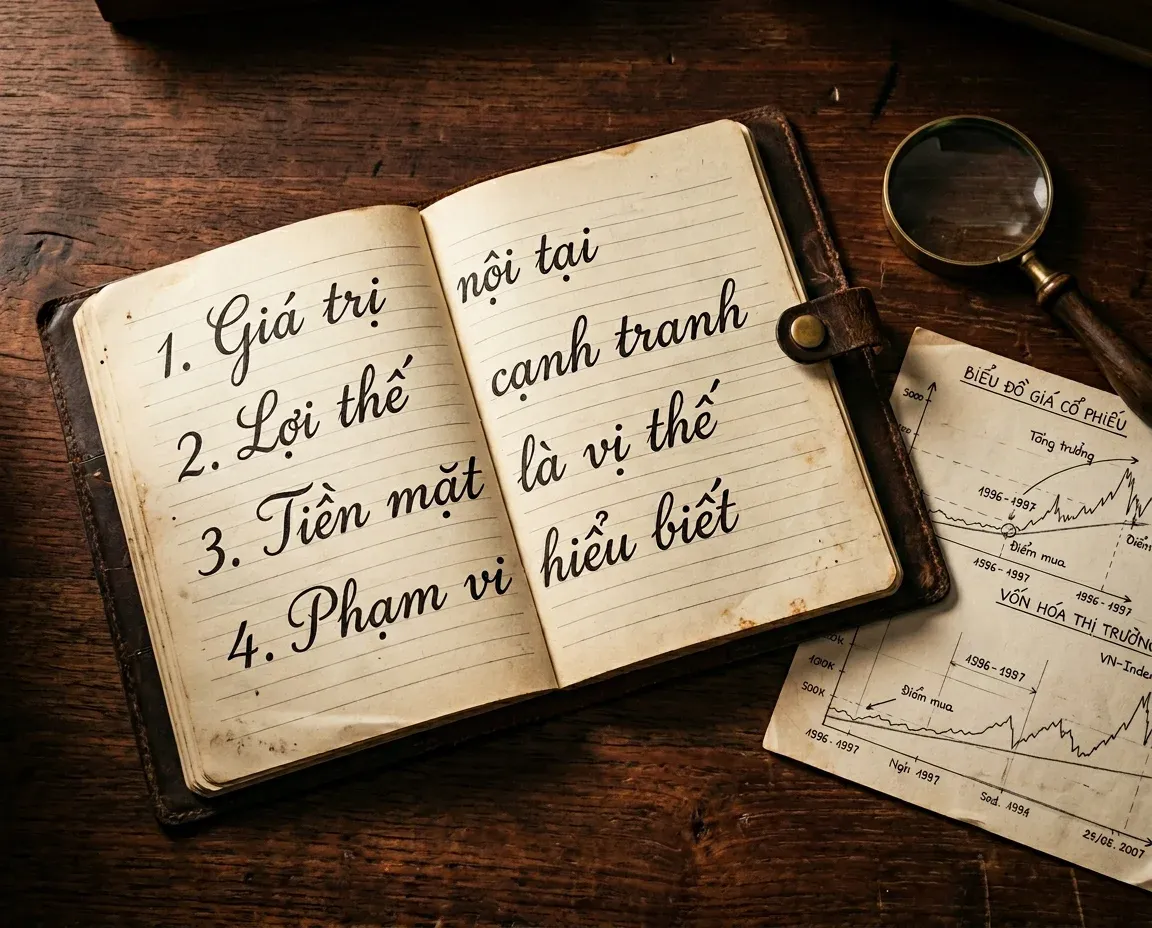 1. Giá trị nội tại
2. Lợi thế cạnh tranh
3. Tiền mặt là vị thế
4. Phạm vi hiểu biết
BIỂU ĐỒ GIÁ CỔ PHIẾU
5000
Tống trưởng
1996-1997
Điểm mua
Điểm
1996-1997
1996-1997
VỐN HÓA THỊ TRƯỜNG
VN-Index
100K
1996-1997
500K
Điểm mua
1996-1997
1997
1994
2007